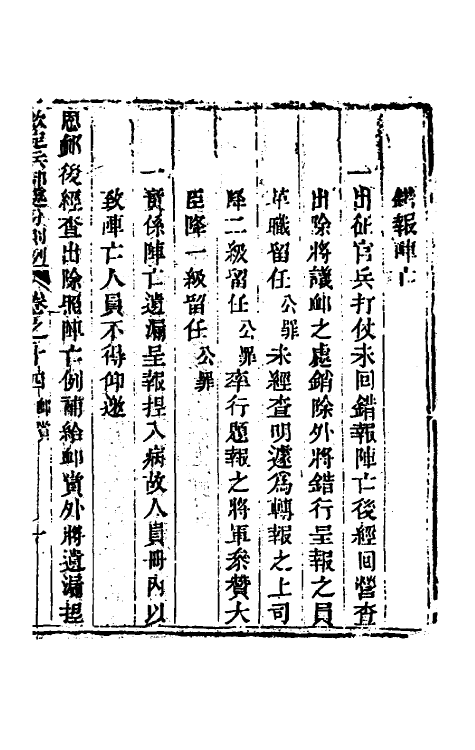 錯報陣亡
一出征官兵打仗未回錯報陣亡後經回營查
出除將議䘏之處銷除外將錯行呈報之員
革職留任公罪未經查明遽爲轉報之上司
降二級留任公罪率行題報之將軍叅贊大
臣降一級留任公罪
一實係陣亡遺漏呈報捏入病故人員冊內以
致陣亡人員不得仰邀
恩䘏後經查出除照陣亡例補給䘏賞外將遺漏捏
欽定兵部處分則例 卷之十四 䘏賞